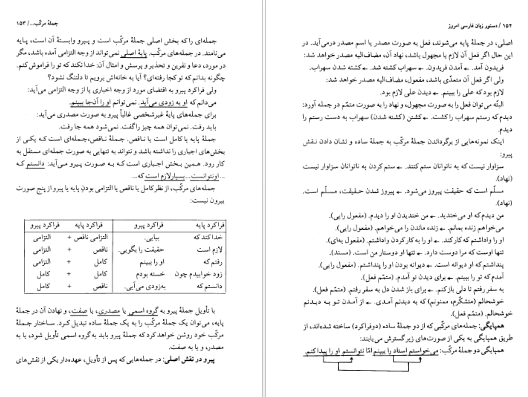 ۱۵۲ / دستور زبان فارسی امروز
اصلی، در جملهٔ پایه می‌شوند، فعل به صورت مصدر یا اسم مصدر درمی‌آید. در
این حال اگر فعل آن لازم یا مجهول باشد، نهاد آن به صورت مضاف‌الیه مصدر خواهد شد:
فریدون آمد. ← آمدن فریدون. سهراب کشته شد. ← کشته شدن سهراب.
ولی اگر فعل آن متعدّی باشد، مفعول، مضاف‌الیه مصدر خواهد شد:
لازم بود که علی را ببینم. ← دیدن علی لازم بود.
البتّه می‌توان فعل را به صورت مجهول، و نهاد را به صورت متمّم در جمله آورد:
دیدم که رستم سهراب را کشت. ← کشتن (کشته شدن) سهراب به دست رستم را
دیدم.
اینک نمونه‌هایی از برگرداندن جملهٔ مرکّب به جملهٔ ساده و نشان دادن نقش
پیرو:
سزاوار نیست که به ناتوانان ستم کنند. ← ستم کردن به ناتوانان سزاوار نیست
(نهاد).
مسلّم است که حقیقت پیروز می‌شود. ← پیروز شدن حقیقت، مسلّم است.
(نهاد).
من دیدم که او می‌خندید. ← من خندیدن او را دیدم. (مفعول رایی).
می‌خواهم زنده بمانم. ← زنده ماندن را می‌خواهم. (مفعول رایی).
او را واداشتم که کار کند. ← او را به کار کردن واداشتم. (مفعول به‌ای).
تنها اوست که مرا دوست دارد. ← تنها او دوستدار من است. (مسند).
پنداشتم که او دیوانه است. ← دیوانه بودن او را پنداشتم. (مفعول رایی).
آمدم که تو را ببینم. ← برای دیدن تو آمدم. (متمّم فعل).
به سفر رفتم تا دلی باز کنم. ← برای باز شدن دل به سفر رفتم. (متمّم فعل).
خوشحالم (متشکّرم، ممنونم) که به دیدنم آمدی. ← از آمدن تو به دیدنم
خوشحالم. (متمّم فعل).
همپایگی: جمله‌های مرکّبی که از دو جملهٔ ساده (دوفراکرد) ساخته شده‌اند، از
طریق همپایگی به یکی از صورت‌های زیر گسترش می‌یابند:
همپایگی دو جملهٔ مرکّب: می‌خواستم استاد را ببینم امّا نتوانستم او را پیدا کنم.
جملهٔ مرکّب... / ۱۵۳
جمله‌ای را که بخش اصلی جملهٔ مرکّب است پایه و پیرو وابستهٔ آن است، پایه
می‌نامند. در جمله‌های مرکّب، پایهٔ اصلی نمی‌تواند از وجه التزامی آمده باشد، مگر
در مورد، دعا و نفرین و تحذیر و پرسش و امثال آن: خدا نکند که تو را فراموش کنم.
چگونه بدانم که تو کجا رفته‌ای؟ آیا به خانه‌اش برویم تا دلتنگ نشود؟
ولی فراکرد پیرو به اقتضای مورد از وجه اخباری یا از وجه التزامی می‌آید:
می‌دانم که او به زودی می‌آید. نمی‌توانم او را آن‌جا ببینم.
برای جمله‌های پایهٔ غیرشخصی غالباً پیرو به صورت مصدری می‌آید:
باید رفت. نمی‌توان همه چیز را گفت. نمی‌شود همه جا رفت.
جملهٔ پایه یا کامل است یا ناقص. جملهٔ ناقص، جمله‌ای است که یکی از
بخش‌های اجباری را نداشته باشد و نتواند به تنهایی به صورت جمله‌ای مستقل به
کار رود. همین بخش اجباری است که به صورت پیرو می‌آید: دانستم که
... او توانست... بسیار لازم است که...
جمله‌های مرکّب، از نظر کامل یا ناقص یا التزامی بودن پایه یا پیرو از پنج صورت
بیرون نیست:
فراکرد پایه فراکرد پیرو فراکرد پایه فراکرد پیرو
خدا کند که بیایی. التزامی ناقص + التزامی
لازم است حقیقت را بگویی. ناقص + التزامی
رفتم که او را ببینم کامل + التزامی
زود خوابیدم چون خسته بودم کامل + کامل
دانستم که به‌زودی می‌آیی. ناقص + کامل
با تأویل جملهٔ پیرو به گروه اسمی یا مصدری، یا صفت، و نهادن آن در جملهٔ
پایه، می‌توان یک جملهٔ مرکّب را به یک جملهٔ ساده تبدیل کرد. ساختار جملهٔ
مرکّب را وقتی روشن خواهد کرد که جملهٔ پیرو باید به گروه اسمی تأویل شود، یا به
مصدر، و یا به صفت.
پیرو در نقش اصلی: در جمله‌هایی که پس از تأویل، عهده‌دار یکی از نقش‌های